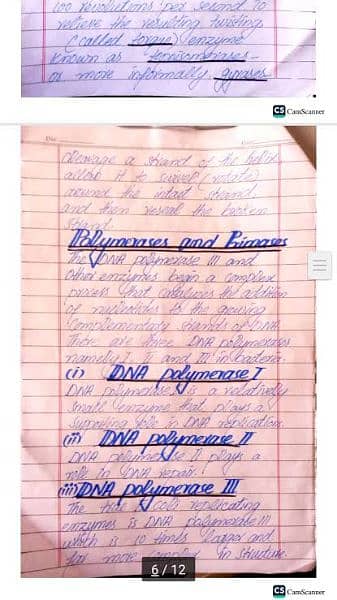 100 revolutions per second. To
relieve the resulting twisting
(called torque) enzyme
known as
or more informally gyrases
CS CamScanner
cleavage a strand of the helix
allow it to swivel (rotate)
around the intact strand
and then reseal the broken
strand.
Polymerases and Primases
The DNA polymerase III and
other enzymes begin a complex
process that catalyzes the addition
of nucleotides to the growing
complementary strands of DNA.
There are three DNA polymerases
namely I, II and III in bacteria.
(i) DNA polymerase I
DNA polymerase I is a relatively
small enzyme that plays a
supporting role in DNA replication.
(ii) DNA polymerase II
DNA polymerase II plays a
role in DNA repair.
(iii) DNA polymerase III
The true E. coli replicating
enzymes is DNA polymerase III
which is 10 times larger and
far more complex in structure
6 / 12
CS CamScanner